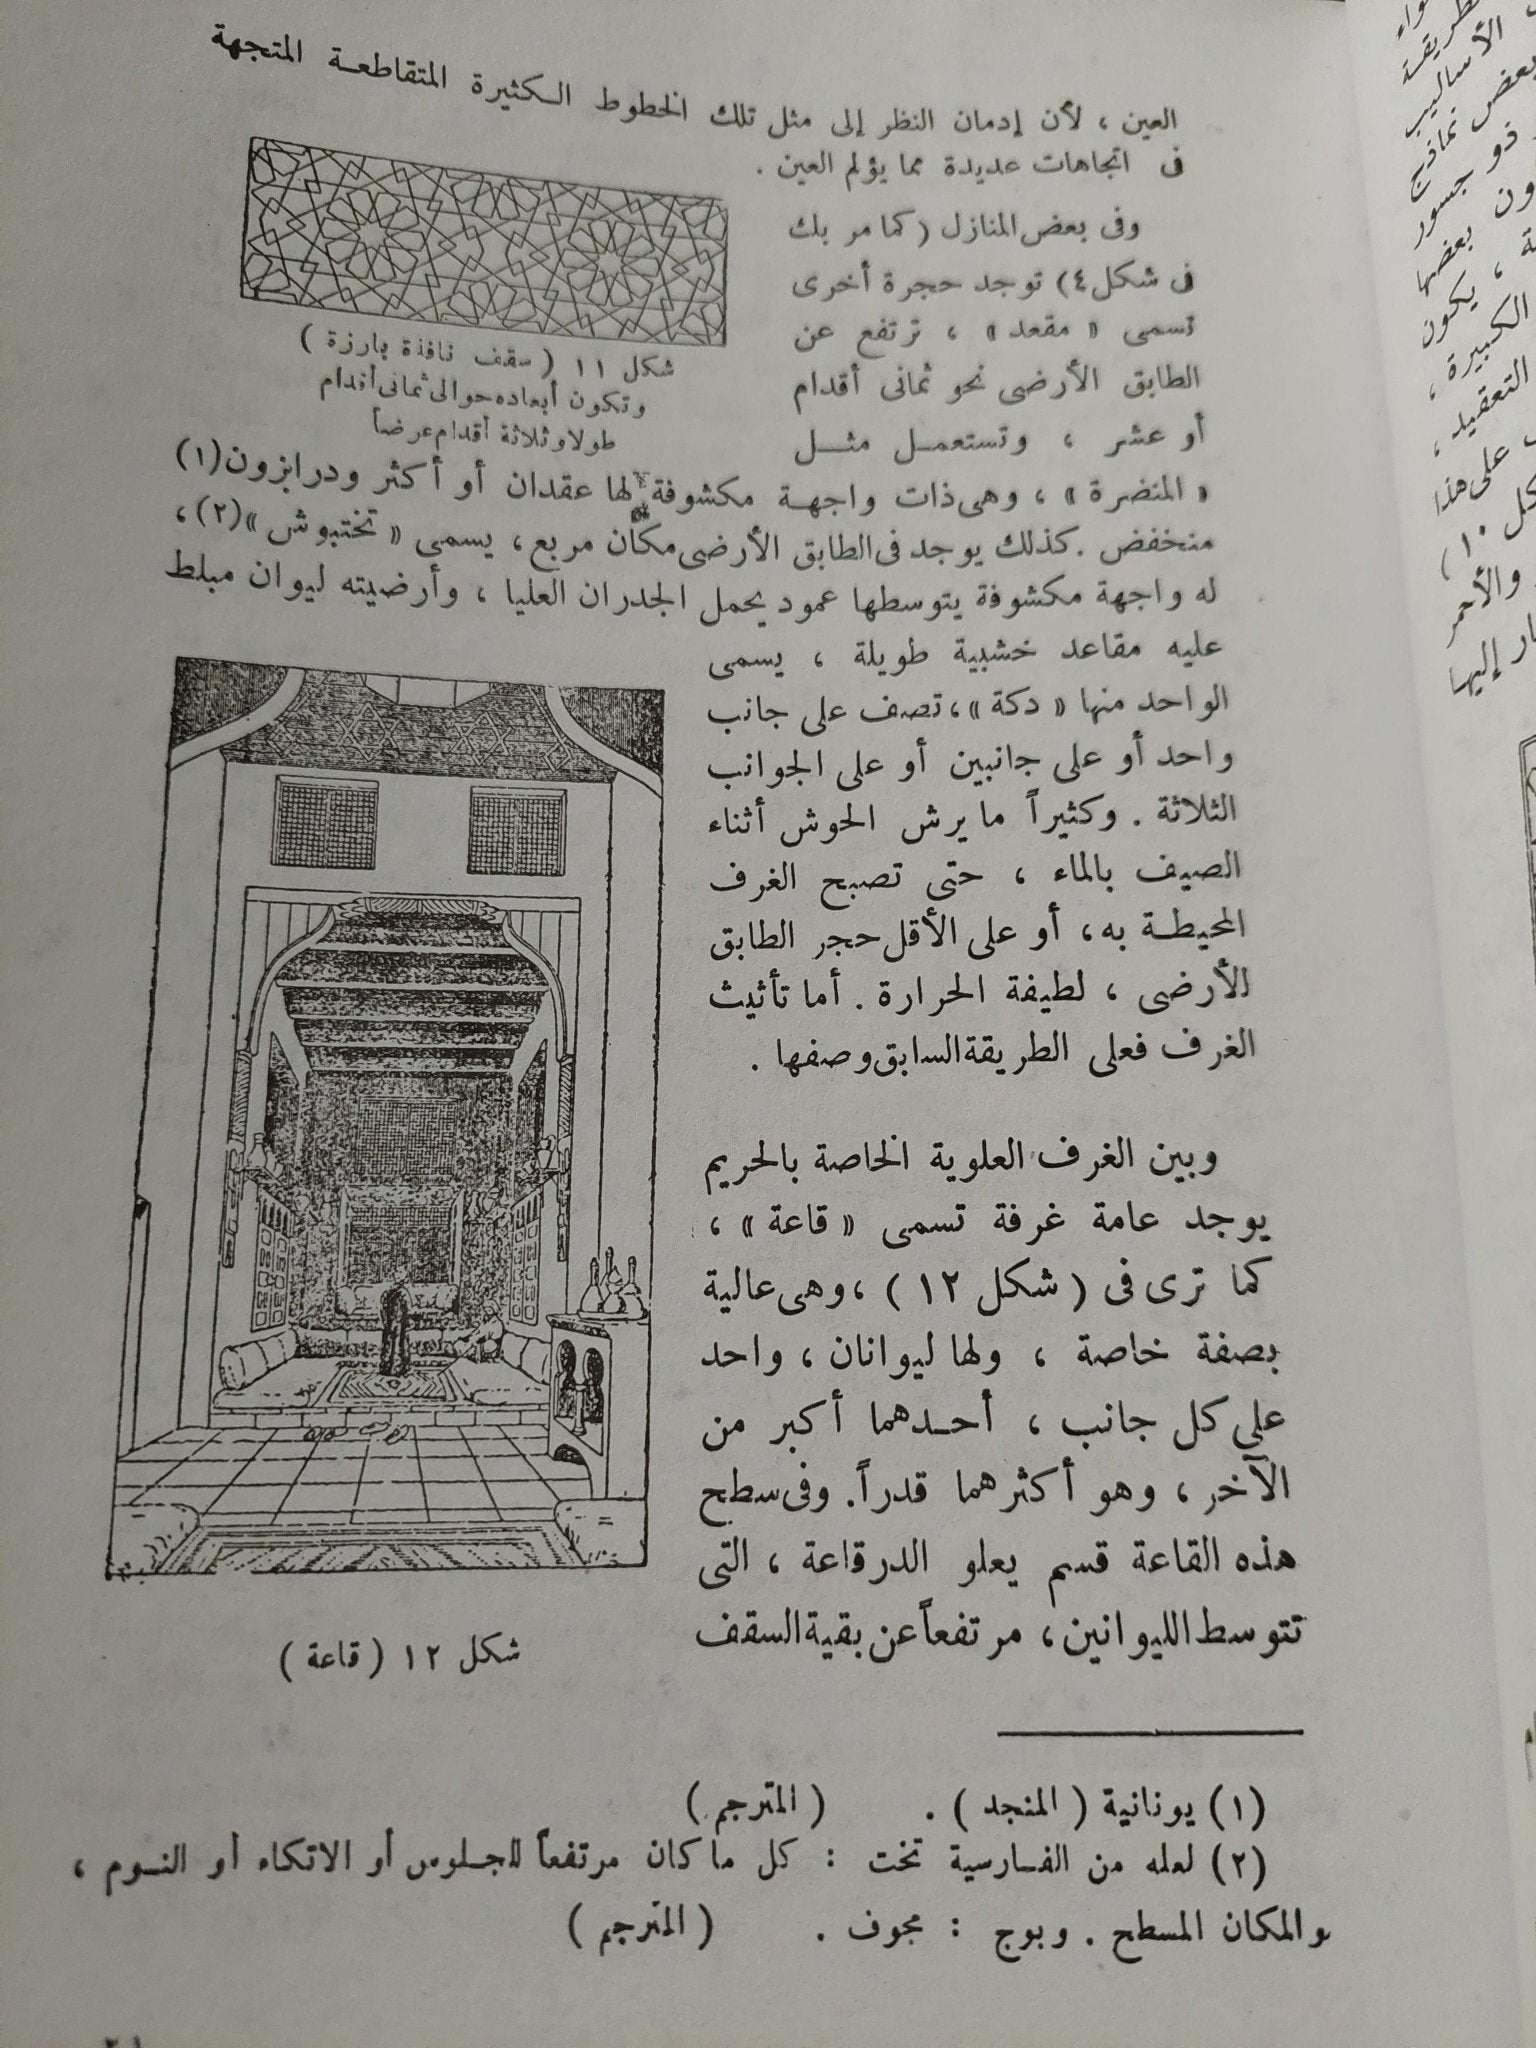 العين ، لأن إدمان النظر إلى مثل تلك الخطوط الكثيرة المتقاطعة المتجهة
فى اتجاهات عديدة مما يؤلم العين .
وفى بعض المنازل ( كما مر بك
فى شكل ٤) توجد حجرة أخرى
تسمى « مقعد » ، ترتفع عن
الطابق الأرضى نحو ثمانى أقدام
أو عشر ، وتستعمل مثل
شكل ١١ ( سقف نافذة بارزة )
وتكون أبعاده حوالى ثمانى أقدام
طولا وثلاثة أقدام عرضاً
« المنضرة » ، وهى ذات واجهة مكشوفة لها عقدان أو أكثر ودرابزون(١)
منخفض . كذلك يوجد فى الطابق الأرضى مكان مربع ، يسمى « تختبوش »(٢) ،
له واجهة مكشوفة يتوسطها عمود يحمل الجدران العليا ، وأرضيته ليوان مبلط
عليه مقاعد خشبية طويلة ، يسمى
الواحد منها « دكة » ، تصف على جانب
واحد أو على جانبين أو على الجوانب
الثلاثة . وكثيراً ما يرش الحوش أثناء
الصيف بالماء ، حتى تصبح الغرف
المحيطة به ، أو على الأقل حجر الطابق
الأرضى ، لطيفة الحرارة . أما تأثيث
الغرف فعلى الطريقة السابق وصفها .
وبين الغرف العلوية الخاصة بالحريم
يوجد عامة غرفة تسمى « قاعة » ،
كما ترى فى ( شكل ١٢ ) ، وهى عالية
بصفة خاصة ، ولها ليوانان ، واحد
على كل جانب ، أحدهما أكبر من
الآخر ، وهو أكثرهما قدراً . وفى سطح
هذه القاعة قسم يعلو الدرقاعة ، التى
تتوسط الليوانين ، مرتفعاً عن بقية السقف
شكل ١٢ ( قاعة )
(١) يونانية ( المنجد ) . ( المترجم )
(٢) لعله من الفارسية تخت : كل ما كان مرتفعاً للجلوس أو الاتكاء أو النوم ،
والمكان المسطح . وبوج : مجوف . ( المترجم )